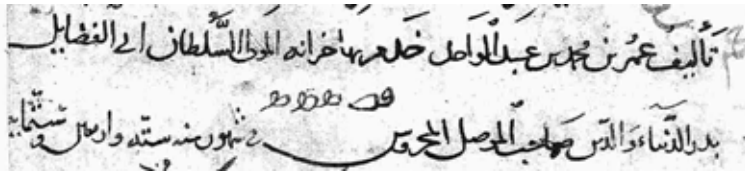 تأليف عمر بن محمد بن عبد الواحد خدم بها خزانة المولى السلطان ابى الفضايل
بدر الدنيا والدين صاحب الموصل المحروس في شهور سنه سته واربعين وستمايه